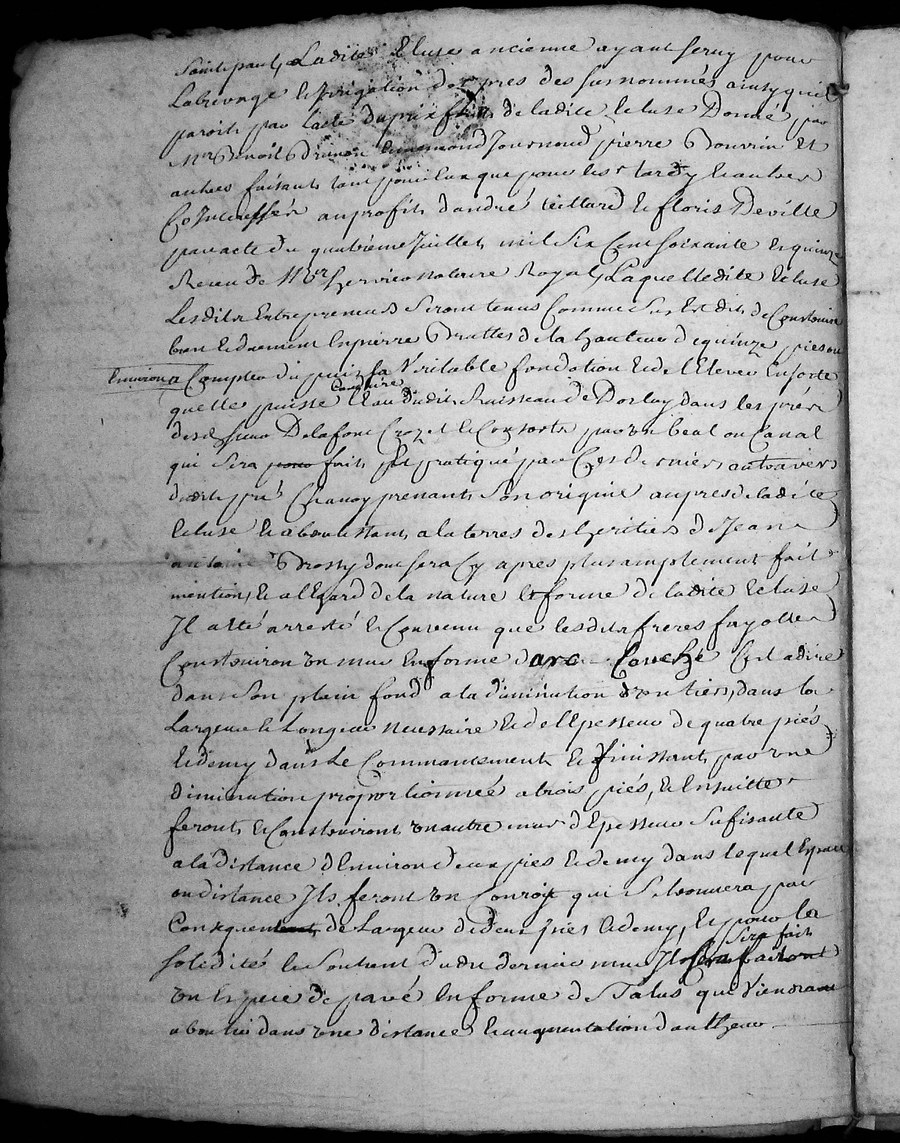 Saint paul, Ladite Ecluse ancienne ayant servy pour
Labreuvage et irrigation des pres des susnommés ainsy quil
paroit par lacte du prix fait de ladite Ecluse Donné par
Mrs Benoist Enemond Journoud pierre Bouvrin Et
autres faisants tant pour Eux que pour les Srs tardy Et autres
CoInteressés au profit d'andré teillard Et floris Deville
par acte du quatrieme Juillet mil Six Cent soixante Et quinze
Receu de Mer Hervieo notaire Royal, Laquelledite Ecluse
Lesdits Entrepreneurs Seront tenus Comme Sus Est dit de Construire
bien Et duement En pierre Brutte de la hauteur de quinze piés ou
Environ a Compter du puis la Veritable fondation Et de l'Elever En sorte
quelle puisse Conduire L'Eau dudit Ruisseau de Dorlay dans les prés
desd. Sieurs Delafont Crozet et Consorts par un beal ou Canal
qui Sera pour fait et pratiqué par Ces derniers autravers
dudit pré Chavoy prenant Son origine aupres de ladite
Ecluse Et aboutissant a la terres des heritiers de Jean
antoine Brosty dont sera Cy apres plus amplement fait
mention, Et a l'Egard de la nature Et forme de ladite Ecluse
Il a Eté arresté Et Convenu que lesdits freres fayolle
Construiron un mur En forme d'arc Couché C'est adire
dans Son plain fond a la diminution d'un tiers, dans la
Largeur Et Longeur necessaire Et de l'Epesseur de quatre piés
Et demy dans Le Commancement Et finissant par une
diminution proportionnée a trois piés, Et Ensuitte
feront Et Construiront un autre mur d'Epesseur Sufisante
a la distance d'Environ deux pies Et demy dans lequel Espace
ou distance Ils feront un Conroit qui Se trouvera par
Consequent de Largeur de Deux piés Et demy, Et pour la
solidité Et Soutient dudit dernier mur Il Sera fait
un Espece de pavé En forme de Talus qui Viendra
aboutir dans une distance Et augmentation d'auttheur